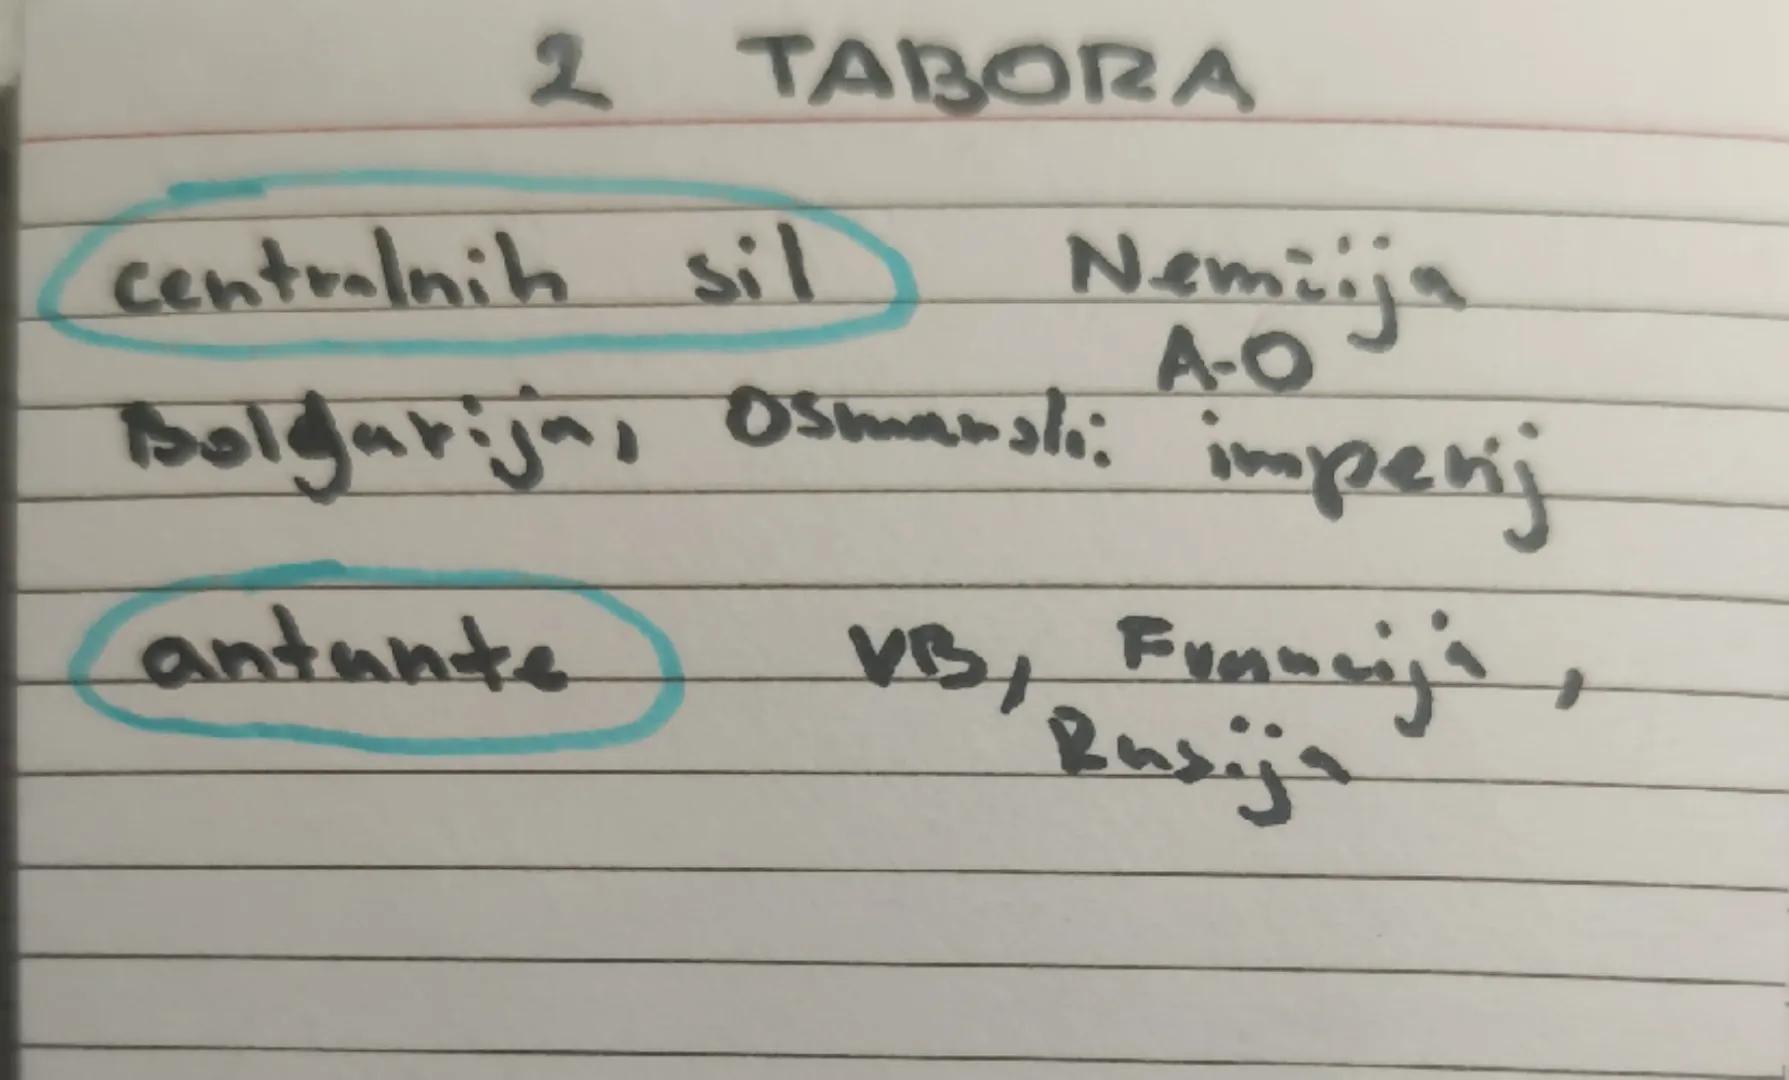 2 TABORA
centralnih sil Nemčija
A-O
Bolgarija, Osmanski imperij
antante VB, Francija,
Rusija